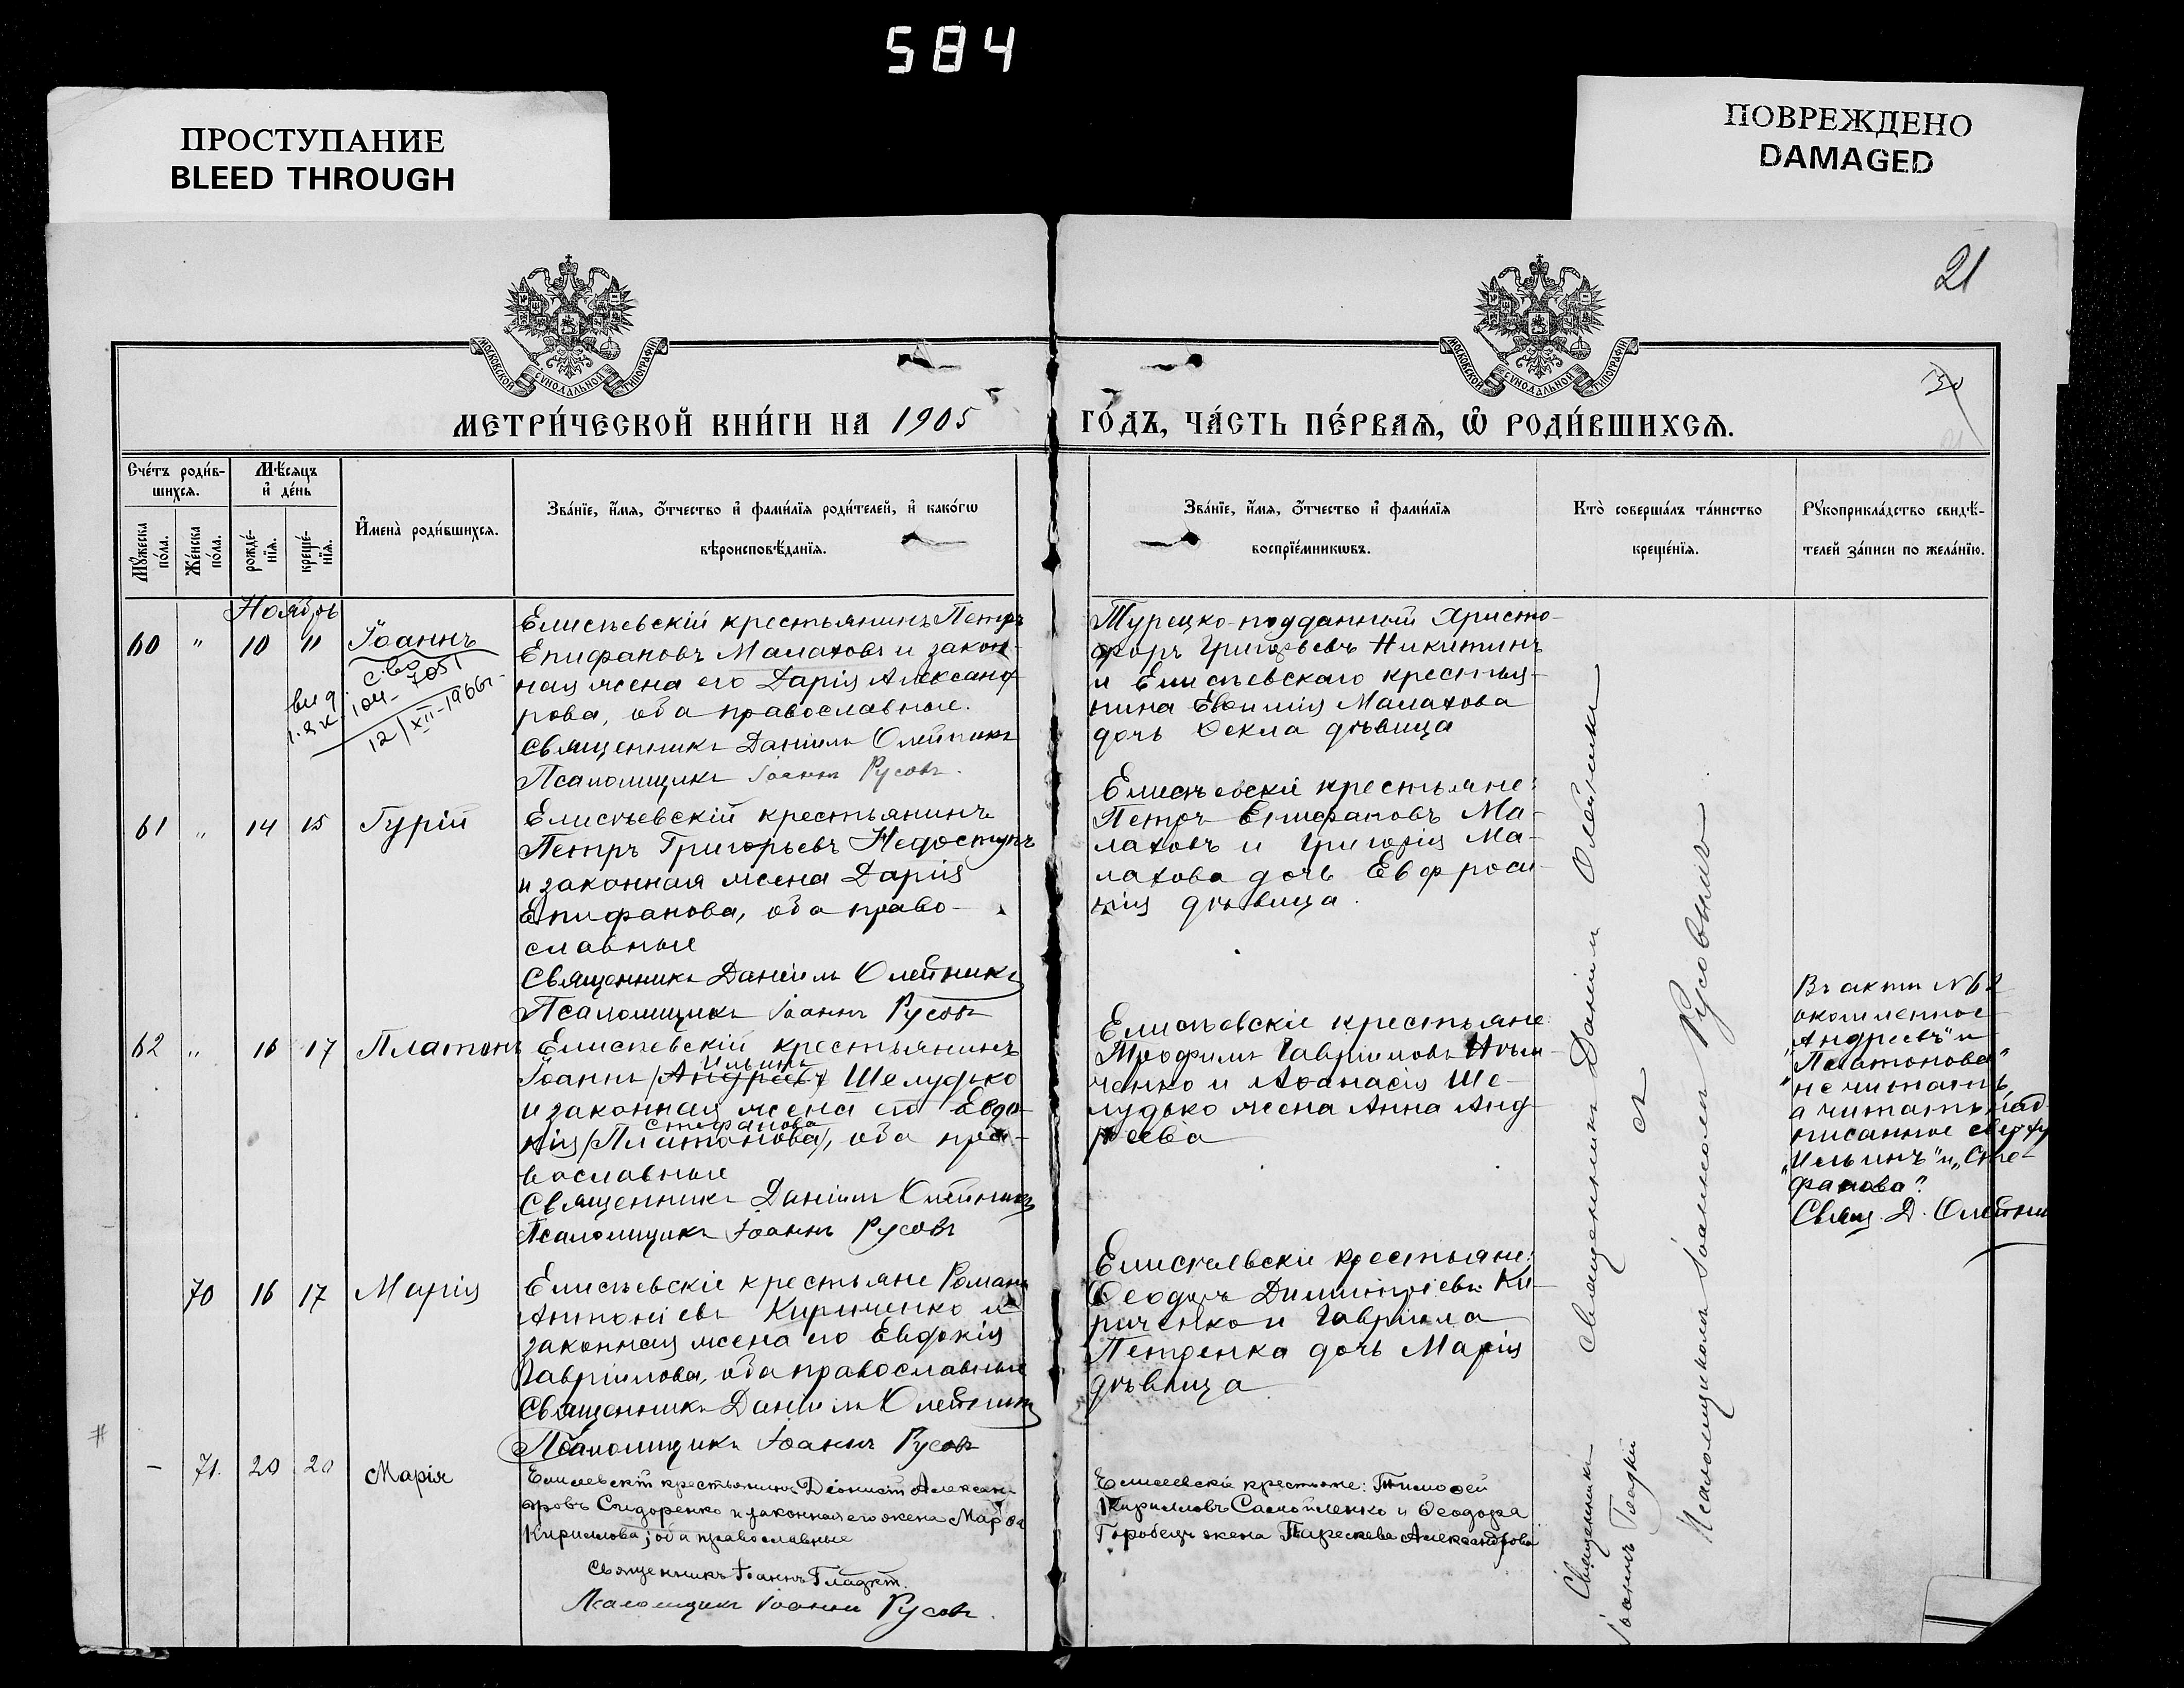 584
ПРОСТУПАНИЕ
BLEED THROUGH
ПОВРЕЖДЕНО
DAMAGED
21
МОСКОВСКОЙ СУНОДАЛЬНОЙ ТИПОГРАФІИ
МОСКОВСКОЙ СУНОДАЛЬНОЙ ТИПОГРАФІИ
МЕТРИ́ЧЕСКОЙ КНИ́ГИ НА 1905
ГО́ДЪ, ЧА́СТЬ ПЕ́РВАѦ, Ѡ҆ РОДИ́ВШИХСѦ.
Сче́тъ роди́в-
шихсѧ.
Мꙋ́жеска
по́ла.
Же́нска
по́ла.
Мѣ́сѧцъ
и҆ де́нь
рожде́-
нїѧ.
креще́-
нїѧ.
И҆мена̀ роди́вшихсѧ.
Зва́нїе, и҆́мѧ, ѻ҆́тчество и҆ фами́лїѧ роди́телей, и҆ како́гѡ
вѣроисповѣ́данїѧ.
Зва́нїе, и҆́мѧ, ѻ҆́тчество и҆ фами́лїѧ
воспрїе́мникѡвъ.
Кто̀ соверша́лъ та́инство
креще́нїѧ.
Рꙋкоприкла́дство свидѣ́-
телей за́писи по жела́нїю.
Ноябрь
60 " 10 11 Іоаннъ
с.во
вид. 1. ЯК. 104- 7051
12/XII-1966г.
Елисѣевскій крестьянинъ Петръ
Епифановъ Малаховъ и закон-
ная жена его Дарія Александ-
рова, оба православные.
Священникъ Даніилъ Олейникъ
Псаломщикъ Іоаннъ Русовъ.
Турецко-подданный Христо-
форъ Григорьевъ Никитинъ
и Елисѣевскаго крестья-
нина Евѳимія Малахова
дочь Ѳекла дѣвица
61 " 14 15 Гурій
Елисѣевскій крестьянинъ
Петръ Григорьевъ Недоступъ
и законная жена Дарія
Епифанова, оба право-
славные
Священникъ Даніилъ Олейникъ
Псаломщикъ Іоаннъ Русовъ
Елисѣевскіе крестьяне:
Петръ Епифановъ Ма-
лаховъ и Григорія Ма-
лахова дочь Евфроси-
нія дѣвица.
62 " 16 17 Платонъ
Елисѣевскій крестьянинъ
Ильинъ
Іоаннъ /Андреевъ/ Шелудько
и законная жена его Евдо-
Стефанова
кія /Платонова/, оба пра-
вославные
Священникъ Даніилъ Олейникъ
Псаломщикъ Іоаннъ Русовъ
Елисѣевскіе крестьяне
Трофимъ Гавріиловъ
и Аѳанасія Ше-
лудько жена Анна Анд-
реева
Въ актѣ №62
окоймленное
"Андреевъ" и
"Платонова"
не читать,
а читать над-
писанное сверху
"Ильинъ" и "Сте-
фанова".
Свящ. Д. Олейни
70 16 17 Марія
Елисѣевскіе крестьяне Романъ
Антоніевъ Кириченко и
законная жена его Евдокія
Гавріилова, оба православные
Священникъ Даніилъ Олейникъ
Псаломщикъ Іоаннъ Русовъ
Елисѣевскіе крестьяне:
Ѳеодоръ Димитріевъ Ки-
риченко и Гавріила
Петренка дочь Марія
дѣвица
– 71. 20 20 Марія
Елисеевскій крестьянинъ Діонисій Алексан-
дровъ Сидоренко и законная его жена Марѳа
Кириллова; оба православные
Священникъ Іоаннъ Гладкій.
Псаломщикъ Іоаннъ Русовъ.
Елисеевскіе крестьяне: Тимоѳей
Кирилловъ Самойленко и Ѳеодора
Горобецъ жена Параскева Александрова
Священникъ Даніилъ Олейникъ
съ
Псаломщикомъ Іоанномъ Русовымъ
Священникъ
Іоаннъ Гладкій